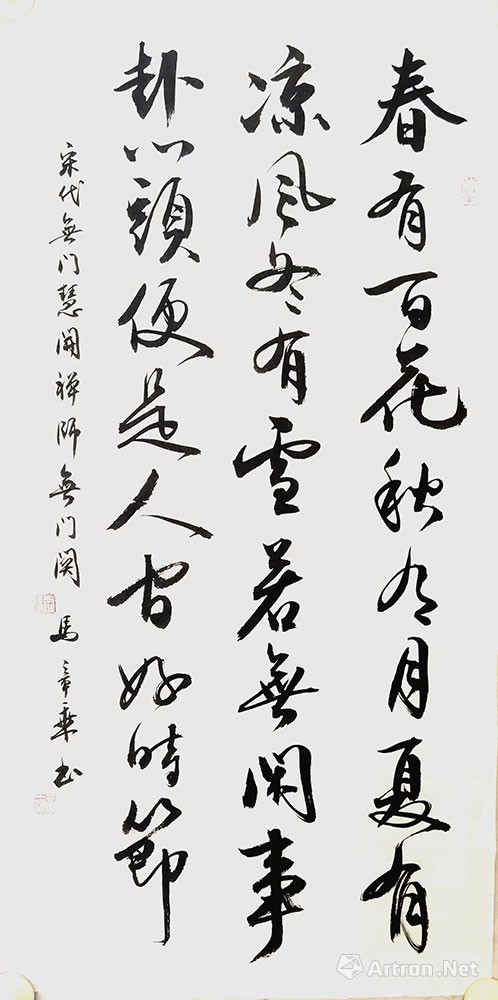 春有百花秋有月夏有
涼風冬有雪若無閑事
卦心頭便是人间好時節
宋代無门慧開禅師無门関 馬章乘书
Artron.Net